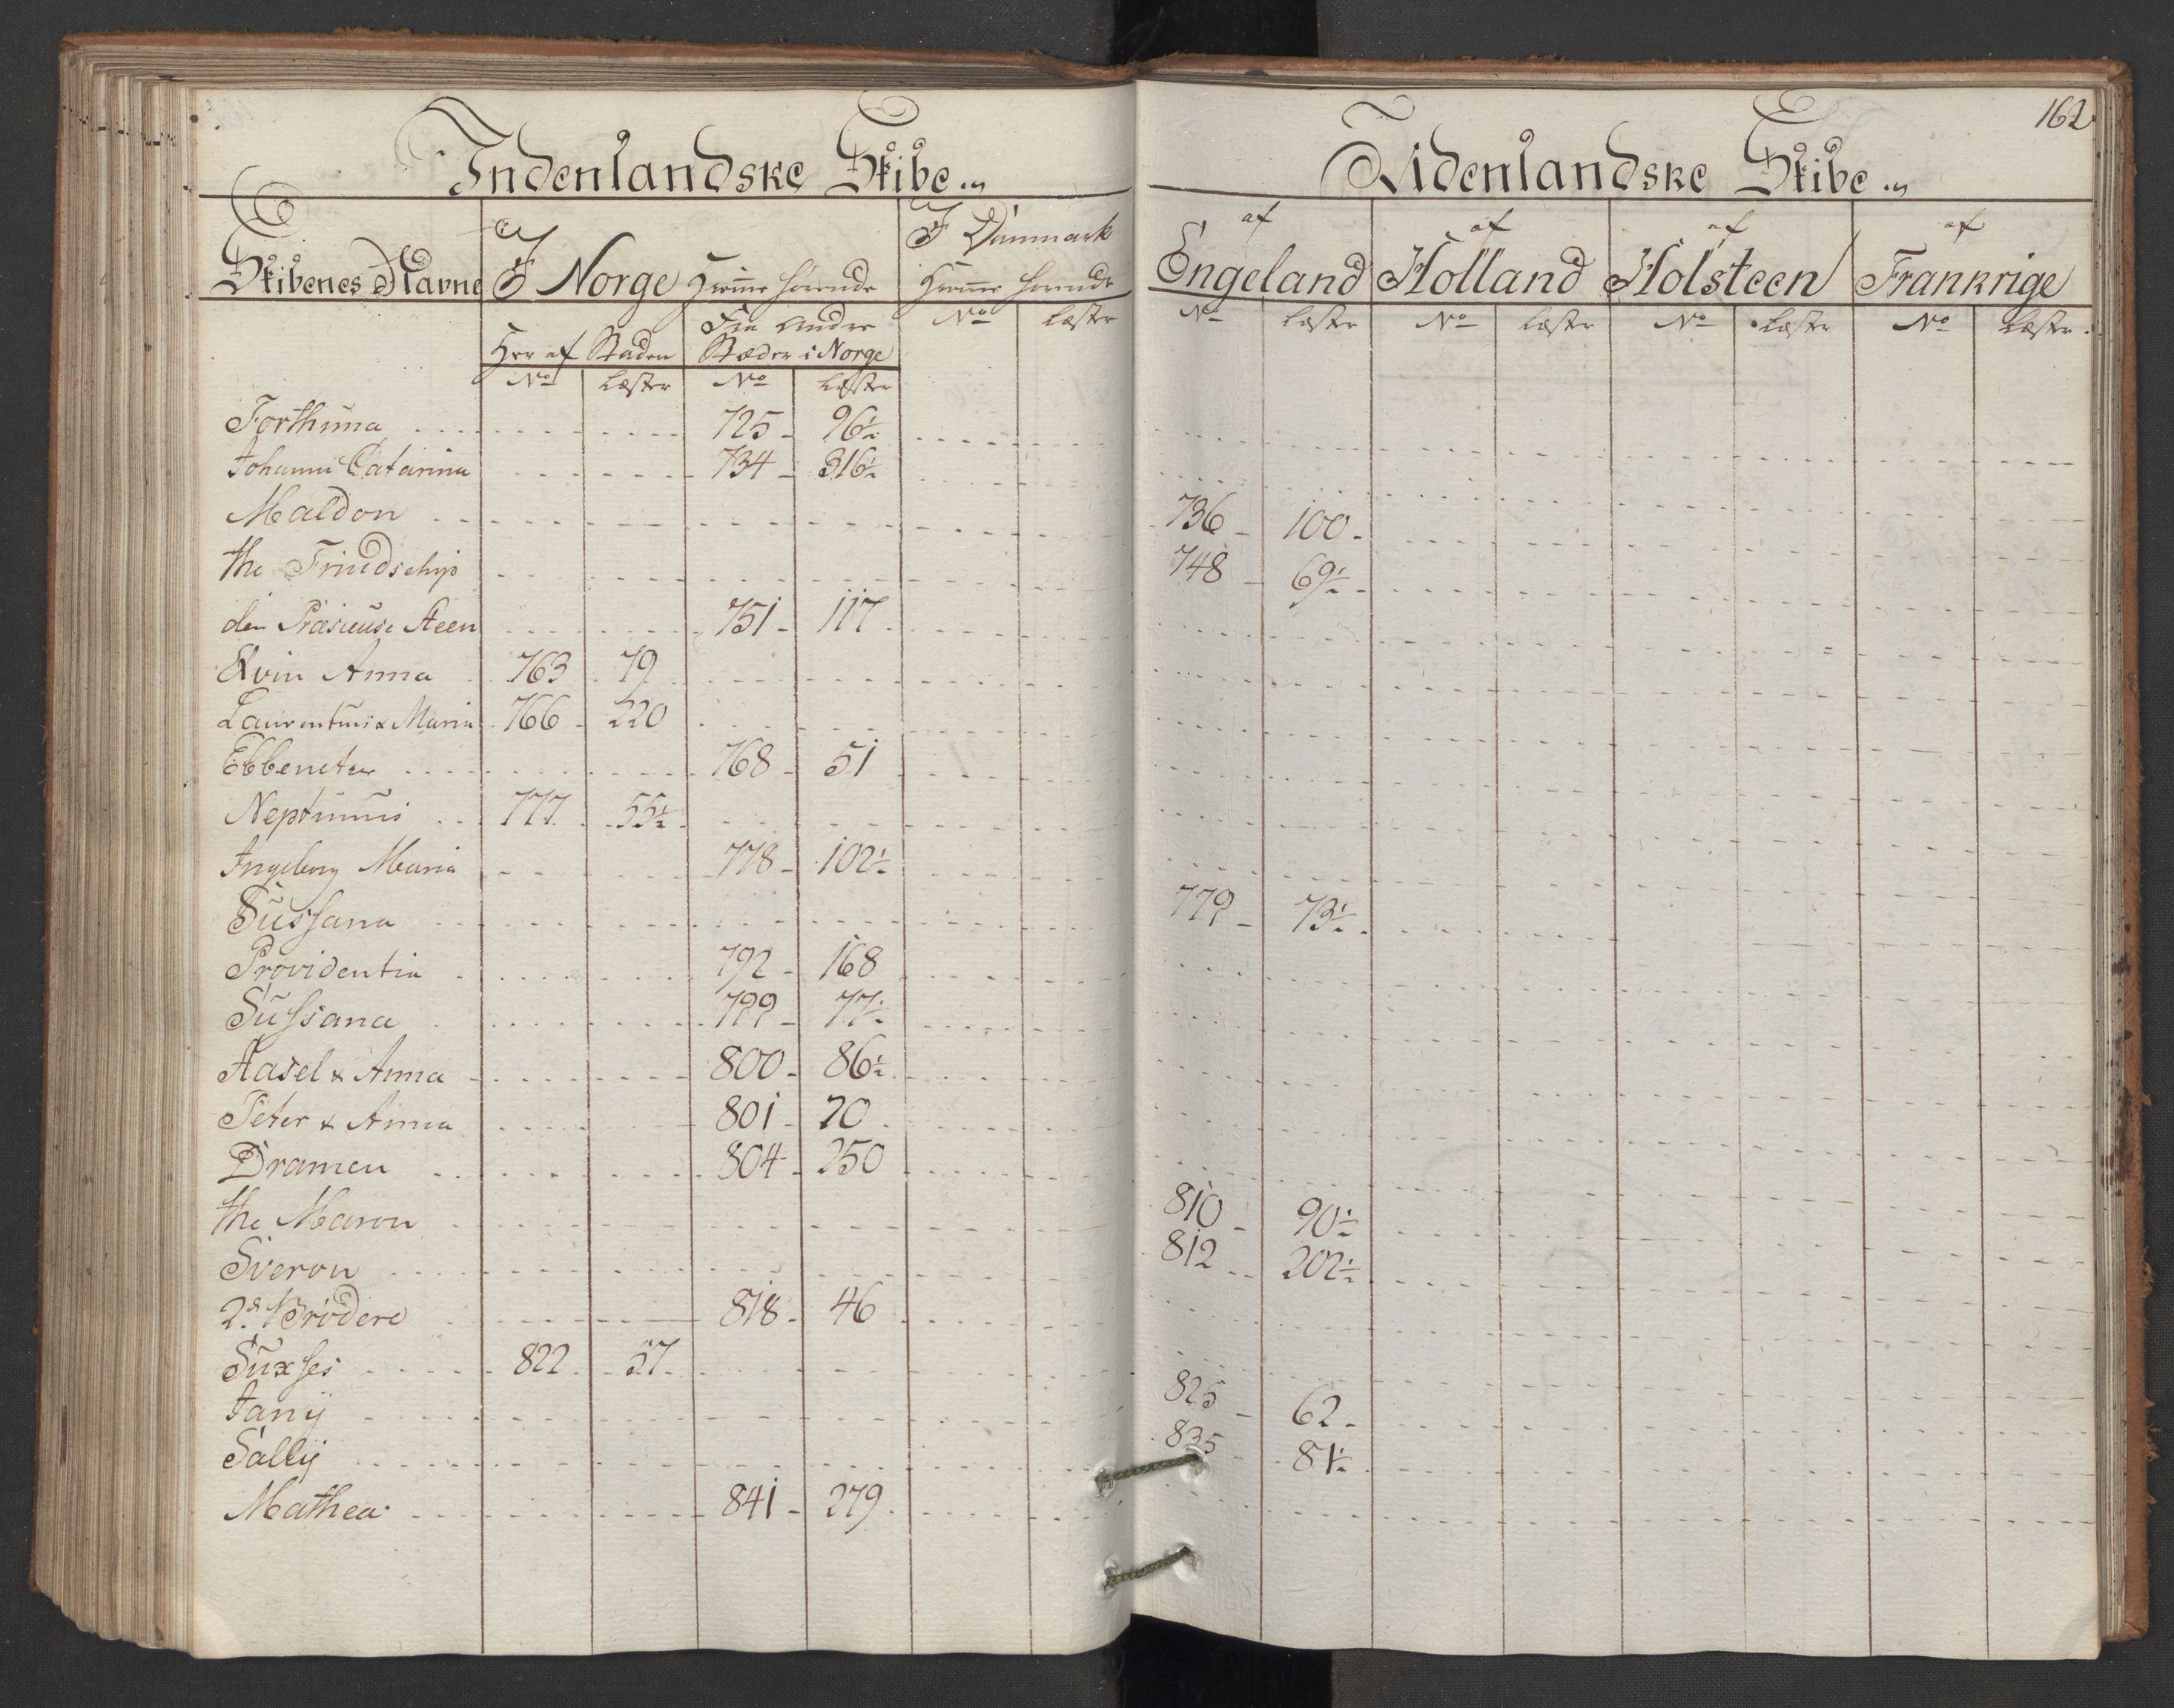 Indenlandske Skibe
Skibenes Navne
I Norge hiemme hörende
I Danmark
hiemme hörende
Her af Staden
Fra andre
Stæder i Norge
No Læster No Læster No Læster
Forthuna 725 96½
Johanna Catarina 734 316½
Maldon
the Friudschip
den Præsieuse Steen 751 117
Evin Anna 763 79
Laurentius & Maria 766 220
Ebbenetzer 768 51
Neptunus 777 55½
Ingeborg Maria 778 102½
Sussana
Providentia 792 168
Sussana 799 77½
Aasel & Anna 800 86½
Peter & Anna 801 70
Dramen 804 250
the Maron
Sveron
2de Brödere 818 46
Suxses 822 57
Janÿ
Sallÿ
Mathea 841 279
162
Udenlandske Skibe
af Engeland af Holland af Holsteen af Frankrige
No Læster No Læster No Læster No Læster
736 100
748 69½
779 73½
810 90½
812 202½
825 62
835 81½